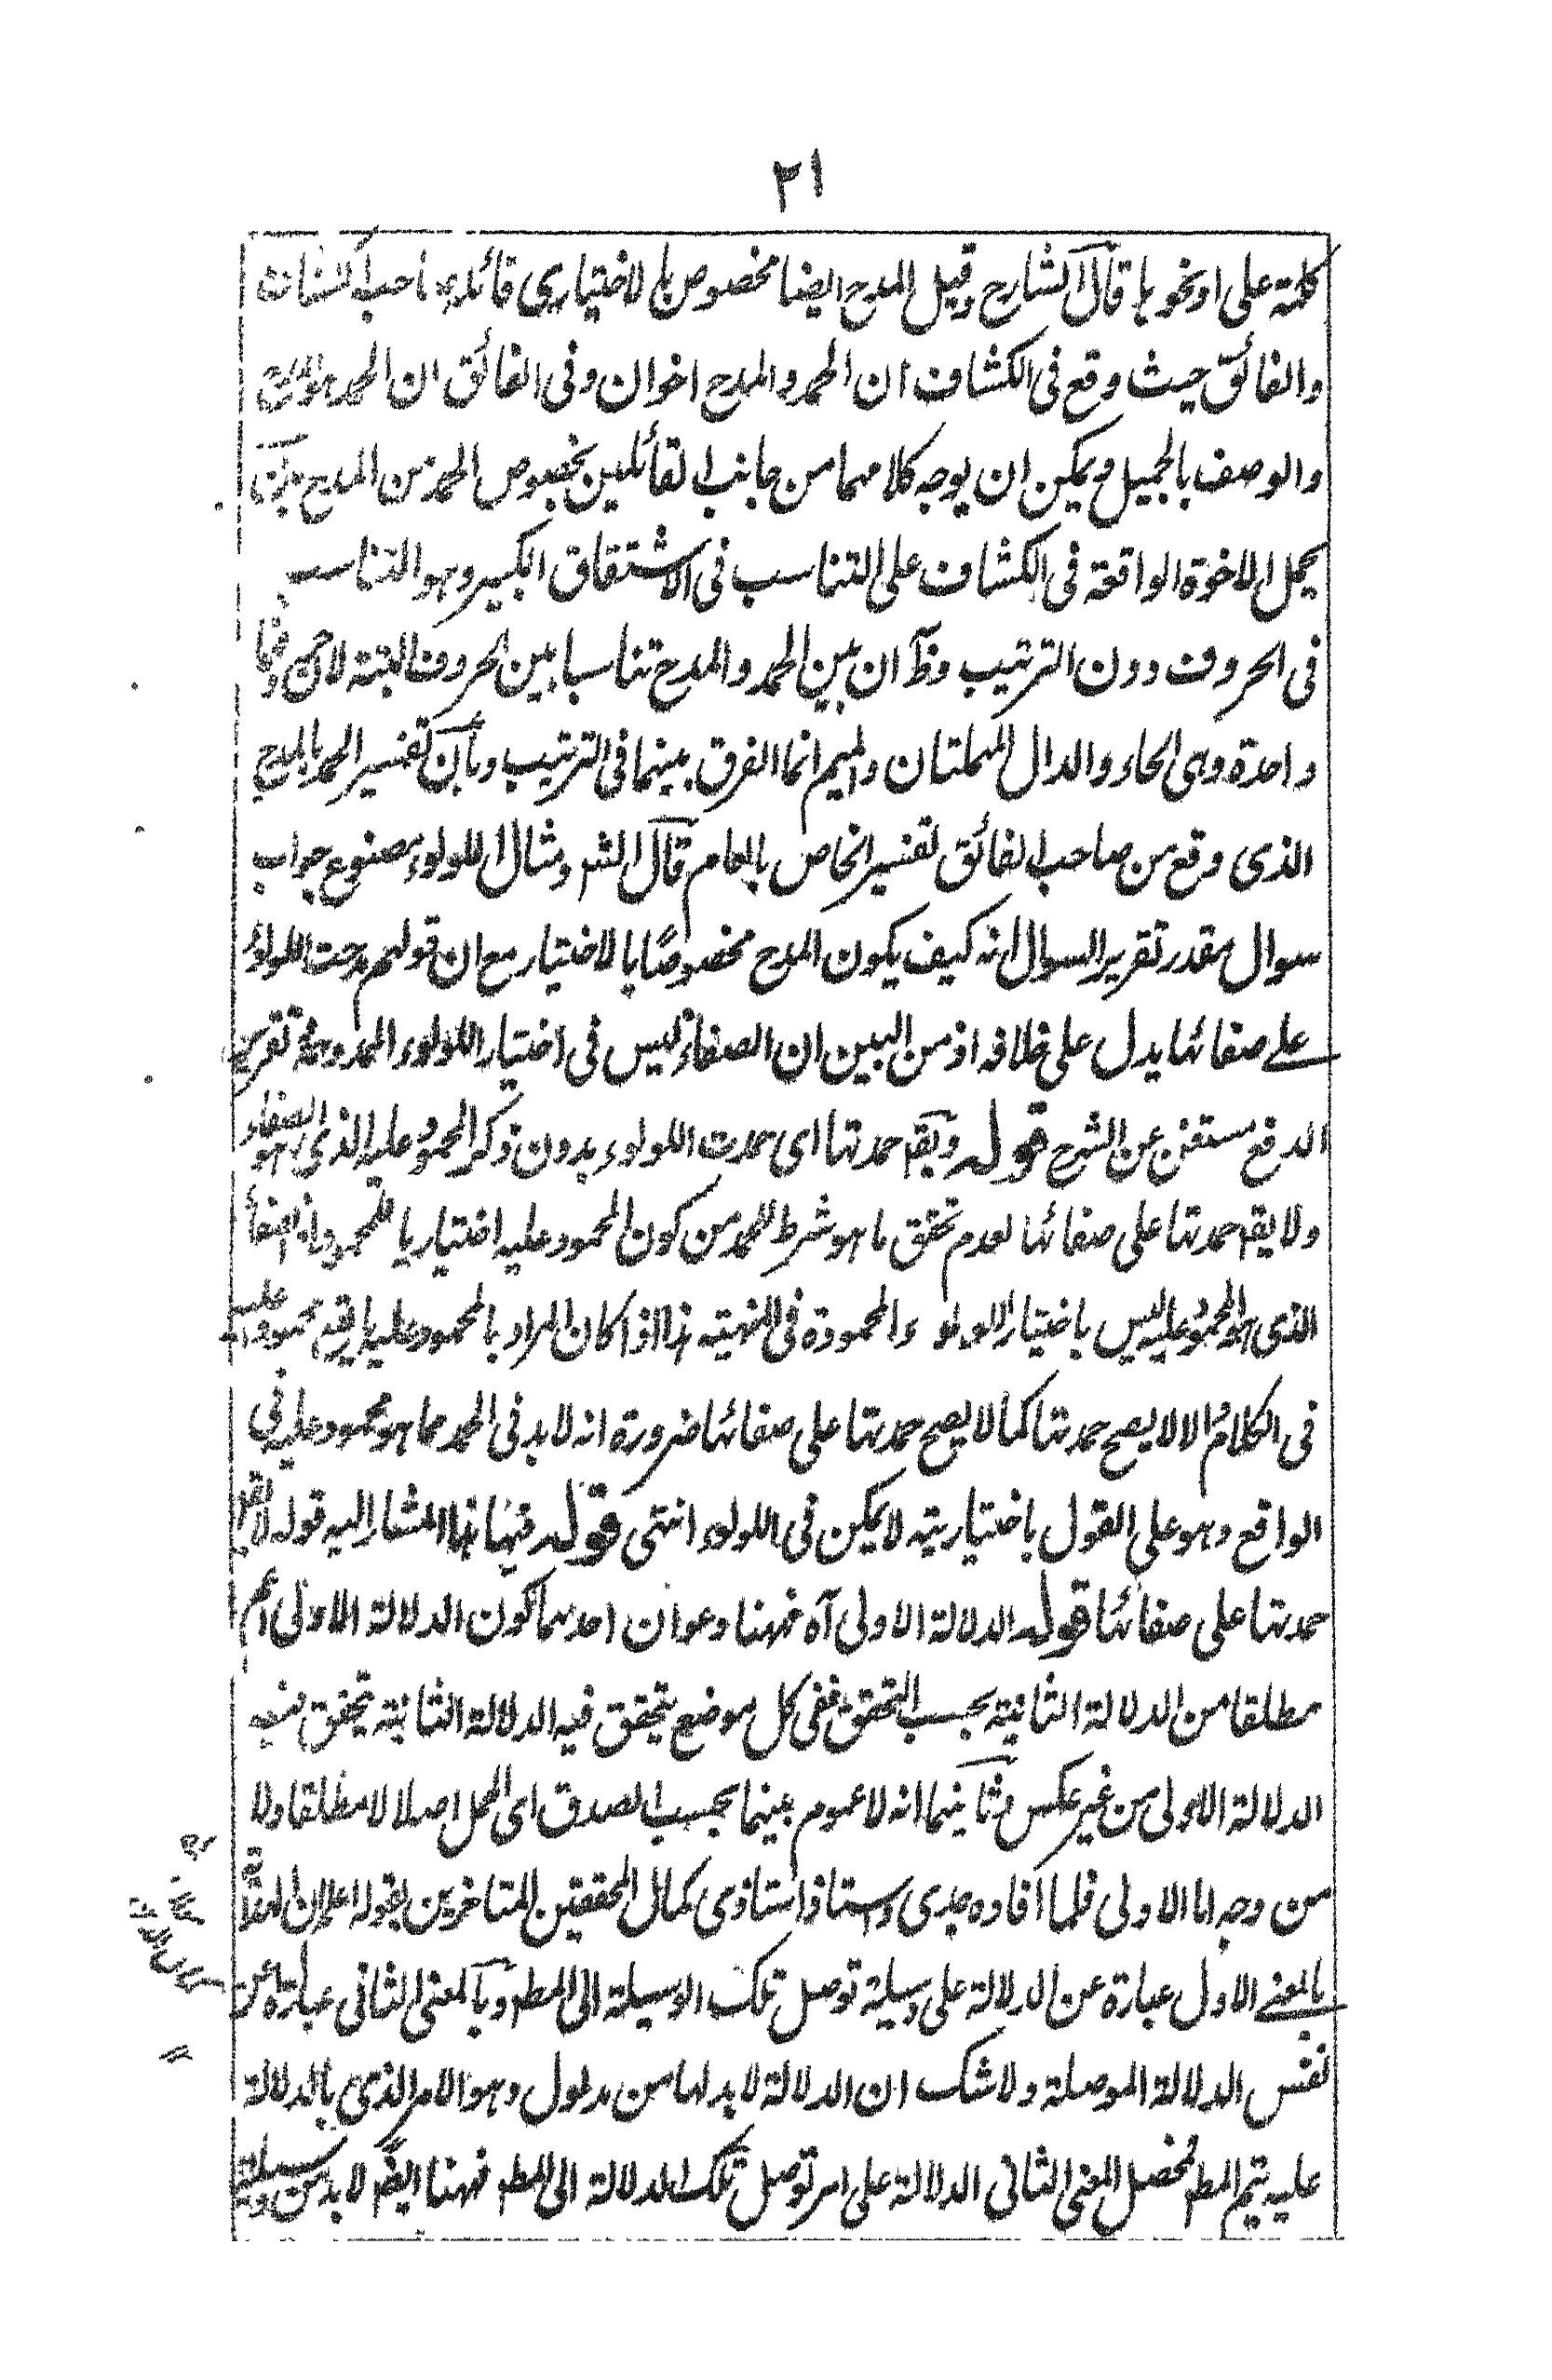 ٢١
كلمة على او نحوها قال الشارح وقيل المدح ايضا مخصوص بالاختياري قائله صاحب الكشاف
والفائق حيث وقع في الكشاف ان الحمد والمدح اخوان وفي الفائق ان الحمد هو المدح
والوصف بالجميل ويمكن ان يوجه كلامهما من جانب القائلين بخصوص الحمد من المدح بان
يحمل الاخوة الواقعة في الكشاف على التناسب في الاشتقاق الكبير وهو التناسب
في الحروف دون الترتيب وظ ان بين الحمد والمدح تناسبا بين الحروف البتة لان حروفهما
واحدة وهى الحاء والدال المهملتان والميم انما الفرق بينهما في الترتيب وبان تفسير الحمد بالمدح
الذى وقع من صاحب الفائق تفسير الخاص بالعام قال الشم ومثال اللولوء مصنوع جواب
سوال مقدر تقرير السوال انه كيف يكون المدح مخصوصًا بالاختيار مع ان قولهم مدحت اللولوء
على صفائها يدل على خلافه اذ من البين ان الصفاء ليس في اختيار اللولوء الممدوحة تقرير
الدفع مستغن عن الشرح قوله ويقم حمدتها اى حمدت اللولوء بدون ذكر المحمود عليه الذى هو الصفاء
ولا يقم حمدتها على صفائها لعدم تحقق ما هو شرط للحمد من كون المحمود عليه اختياريا للمحمود فان الصفاء
الذى هو المحمود عليه ليس باختيار اللولوء المحمودة في المنهية هذا اذا كان المراد بالمحمود عليه ما يقع محمودا عليه
في الكلام والا لا يصح حمدتها كما لا يصح حمدتها على صفائها ضرورة انه لا بد في الحمد مما هو محمود عليه في
الواقع وهو على القول باختياريته لا يمكن في اللولوء انتهى قوله فيها هذا المشار اليه قوله لا يقم
حمدتها على صفائها قوله الدلالة الاولى آه فههنا دعوان احدهما كون الدلالة الاولى اعم
مطلقا من الدلالة الثانية بحسب التحقق ففى كل موضع يتحقق فيه الدلالة الثانية تحقق فيه
الدلالة الاولى من غير عكس وثانيهما انه لا عموم بينهما بحسب الصدق اى الحمل اصلا لا مطلقا ولا
من وجه اما الاولى فلما افاده جدى واستاذ استاذى كمال المحققين المتاخرين بقوله اعلم ان الهداية
بالمعنى الاول عبارة عن الدلالة على وسيلة توصل تلك الوسيلة الى المطم وبالمعنى الثانى عبارة عن
نفس الدلالة الموصلة ولا شك ان الدلالة لا بد لها من مدلول وهو الامر الذى بالدلالة
عليه يتم المطم فمحصل المعنى الثانى الدلالة على امر توصل تلك الدلالة الى المطم فههنا ايضًا لا بد من وسيلة